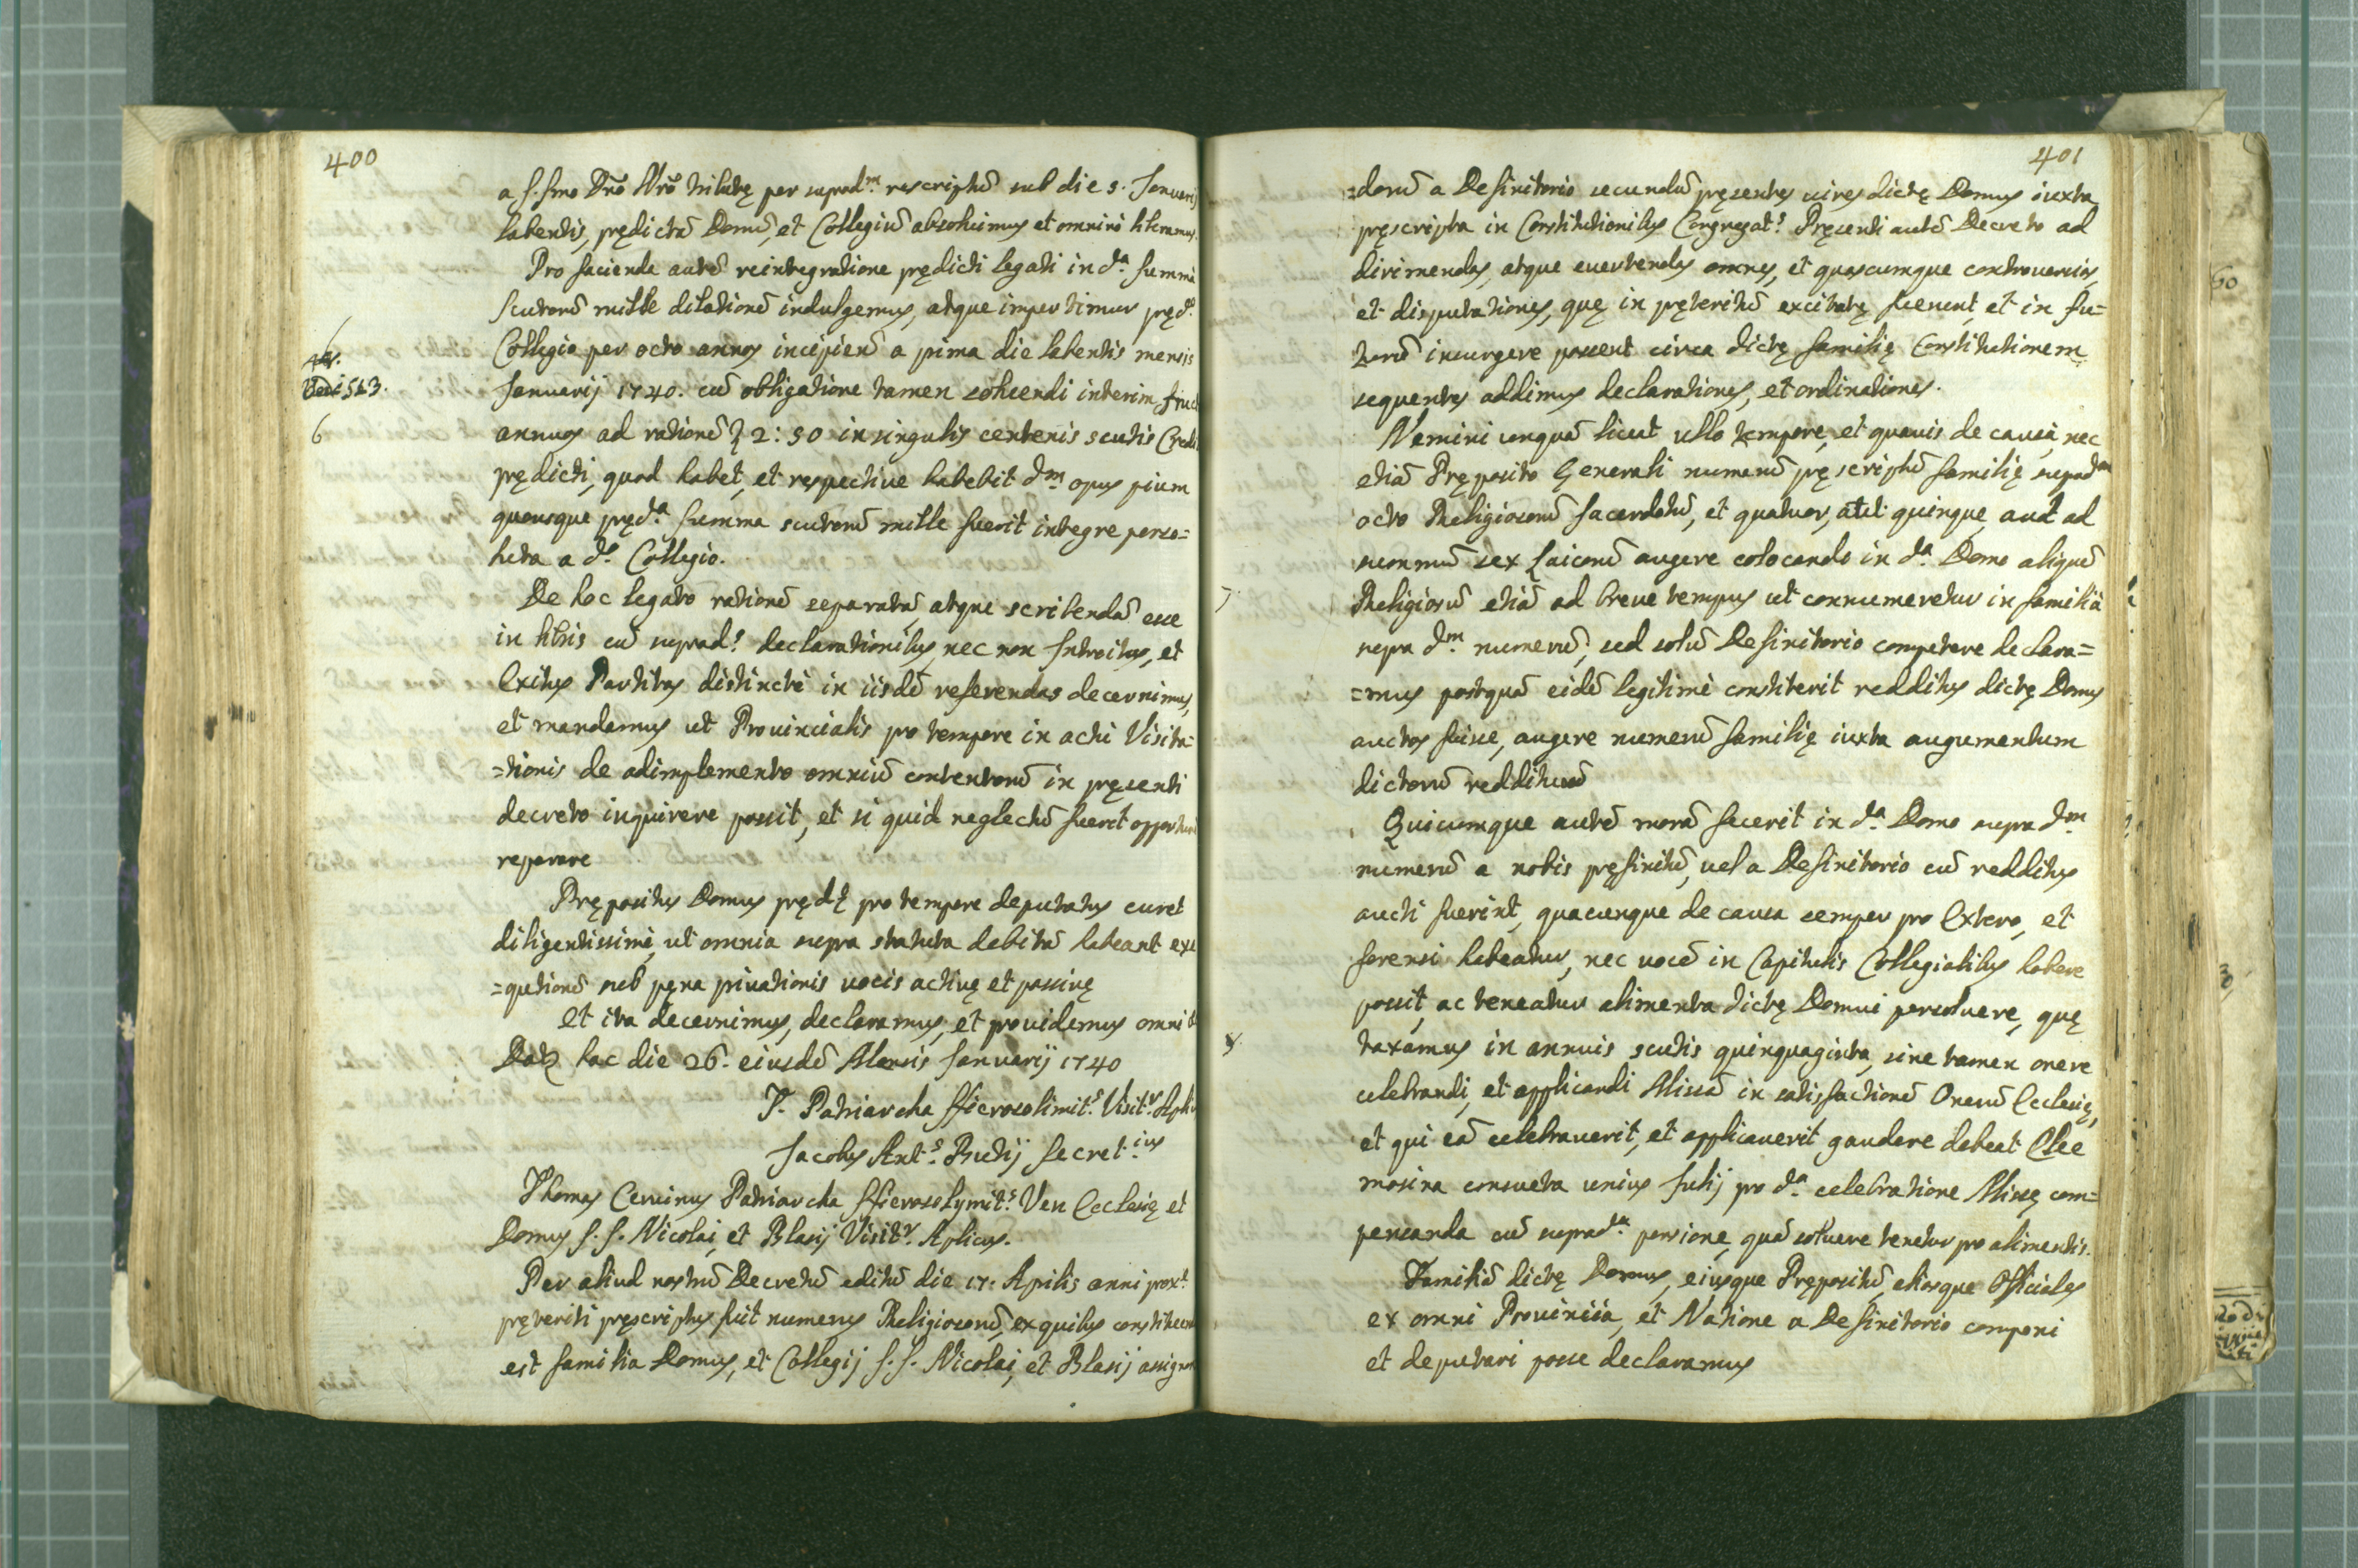 400
a S.Smo Dño Nrõ tributę per suprad.m rescriptũ sub die 5. Januarij
labentis, prędictã Domũ, et Collegiũ absoluimus et omnino liberamus.
Pro facienda autẽ reintegratione prędicti legati in d.a summa
scutorũ mille dilationẽ indulgemus, atque impertimur pręd.o
Collegio per octo annos incipiend a prima die labentis mensis
Januarij 1740. cũ obligatione tamen soluendi interim fruc
annuos ad rationẽ 2: 50 in singulis centenis scutis Credi
prędicti, quod habet, et respective habebit d.m opus pium
quousque pręd.a summa scutorũ mille fuerit integre perso=
luta a d.o Collegio.
De hoc legato rationẽ separatã, atque scribendã esse
in libris cũ suprad.s declarationibus, nec non Introitus, et
Exitus Partitas distinctè in iisdẽ referendas decernimus,
et mandamus ut Provincialis pro tempore in actu Visita=
=tionis de adimplemento omniũ contentorũ in pręsenti
decreto inquirere possit, et si quid neglectũ fuerit opportunè
reparare
Prępositus Domus pręd.ę pro tempore deputatus curet
diligentissimè, ut omnia supra statuta debitã habeant exe
=qutionẽ sub pęna privationis vocis activę et passivę
Et ita decernimus, declaramus, et providemus omni
Dat. hac die 26. eiusdẽ Mensis Januarij 1740
T. Patriarcha Hierosolimit.s Visit.r Aplic
Jacobus Ant.s Rudij Secret.ius
Thomas Cervinus Patriarcha Hierosolymit.s Ven Ecclesię et
Domus S.S. Nicolai, et Blasij Visit.r Aplicus.
Per aliud nostrũ Decretũ editũ die 17. Aprilis anni prox.i
pręteriti pręscriptus fuit numerus Religiosorũ, ex quibus constituend
est familia Domus, et Collegij S.S. Nicolai, et Blasij assignan
Vedi 563.
6
401
=dorũ a Definitorio secundũ pręsentes vires dictę Domus iuxta
pręscripta in Constitutionibus Congregat.s Pręsenti autẽ Decreto ad
dirimendas, atque evertendas omnes, et quascumque controversias,
et disputationes, quę in pręteritũ excitatę fuerunt, et in fu=
turũ insurgere possent circa dictę familię Constitutionem
sequentes addimus declarationes, et ordinationes.
Nemini unquã liceat ullo tempore, et quavis de causa, nec
etiã Pręposito Generali numerũ pręscriptũ familię suprad.ae
octo Religiosorũ Sacerdotũ, et quatuor, atet quinque, aut ad
summũ sex Laicorũ augere colocando in d.a Domo aliquẽ
Religiosũ etiã ad breve tempus ut connumeretur in familià
supra d.m numerũ, sed solũ Definitorio competere declara=
=mus postquã eidẽ legitimè constiterit redditus dictę Domus
auctos fuisse, augere numerũ familię iuxta augumentum
dictorũ reddituũ
Quicumque autẽ morã fecerit in d.a Domo supra d.m
numerũ a nobis pręfinitũ, vel a Definitorio cũ redditus
aucti fuerint, quacunque de causa semper pro Extero, et
forensi habeatur, nec vocẽ in Capitulis Collegialibus habere
possit, ac teneatur alimenta dictę Domui persolvere, quę
taxamus in annuis scutis quinquaginta, sine tamen onere
celebrandi, et applicandi Missã in satisfactionẽ Onerũ Ecclesię,
et qui eã celebraverit, et applicaverit gaudere debeat Elee
mosina consueta unius Julij pro d.a celebratione Missę com=
pensanda cũ suprad.a pensione, quã solvere tenetur pro alimentis.
Familiã dictę Domus, eiusque Prępositũ, aliosque Officiales
ex omni Provincia, et Natione a Definitorio componi
et deputari posse declaramus
7.
8.